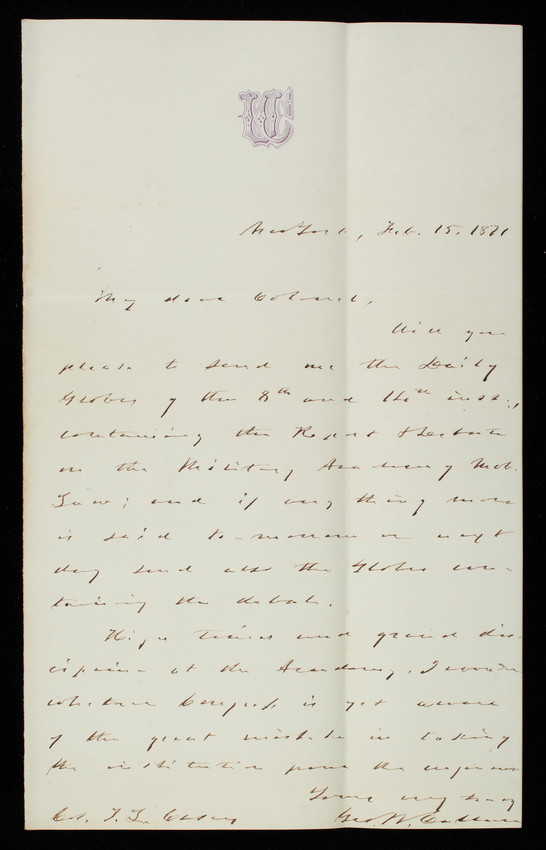 New York, Feb. 15, 1871
My dear Colonel,
Will you
please to send me the Daily
Globes of the 8th and inst.,
containing the Report & Debate
on the Military Academy Mob
Law; and if any thing more
is said to-morrow or next
day send also the Globes con-
taining the debate.
High times and grand dis-
cipline at the Academy. I wonder
whether Congress is yet aware
of the great mistake in taking
the institution from the engineers
Yours very truly
Geo. W. Cullum
Col. T. L. Casey